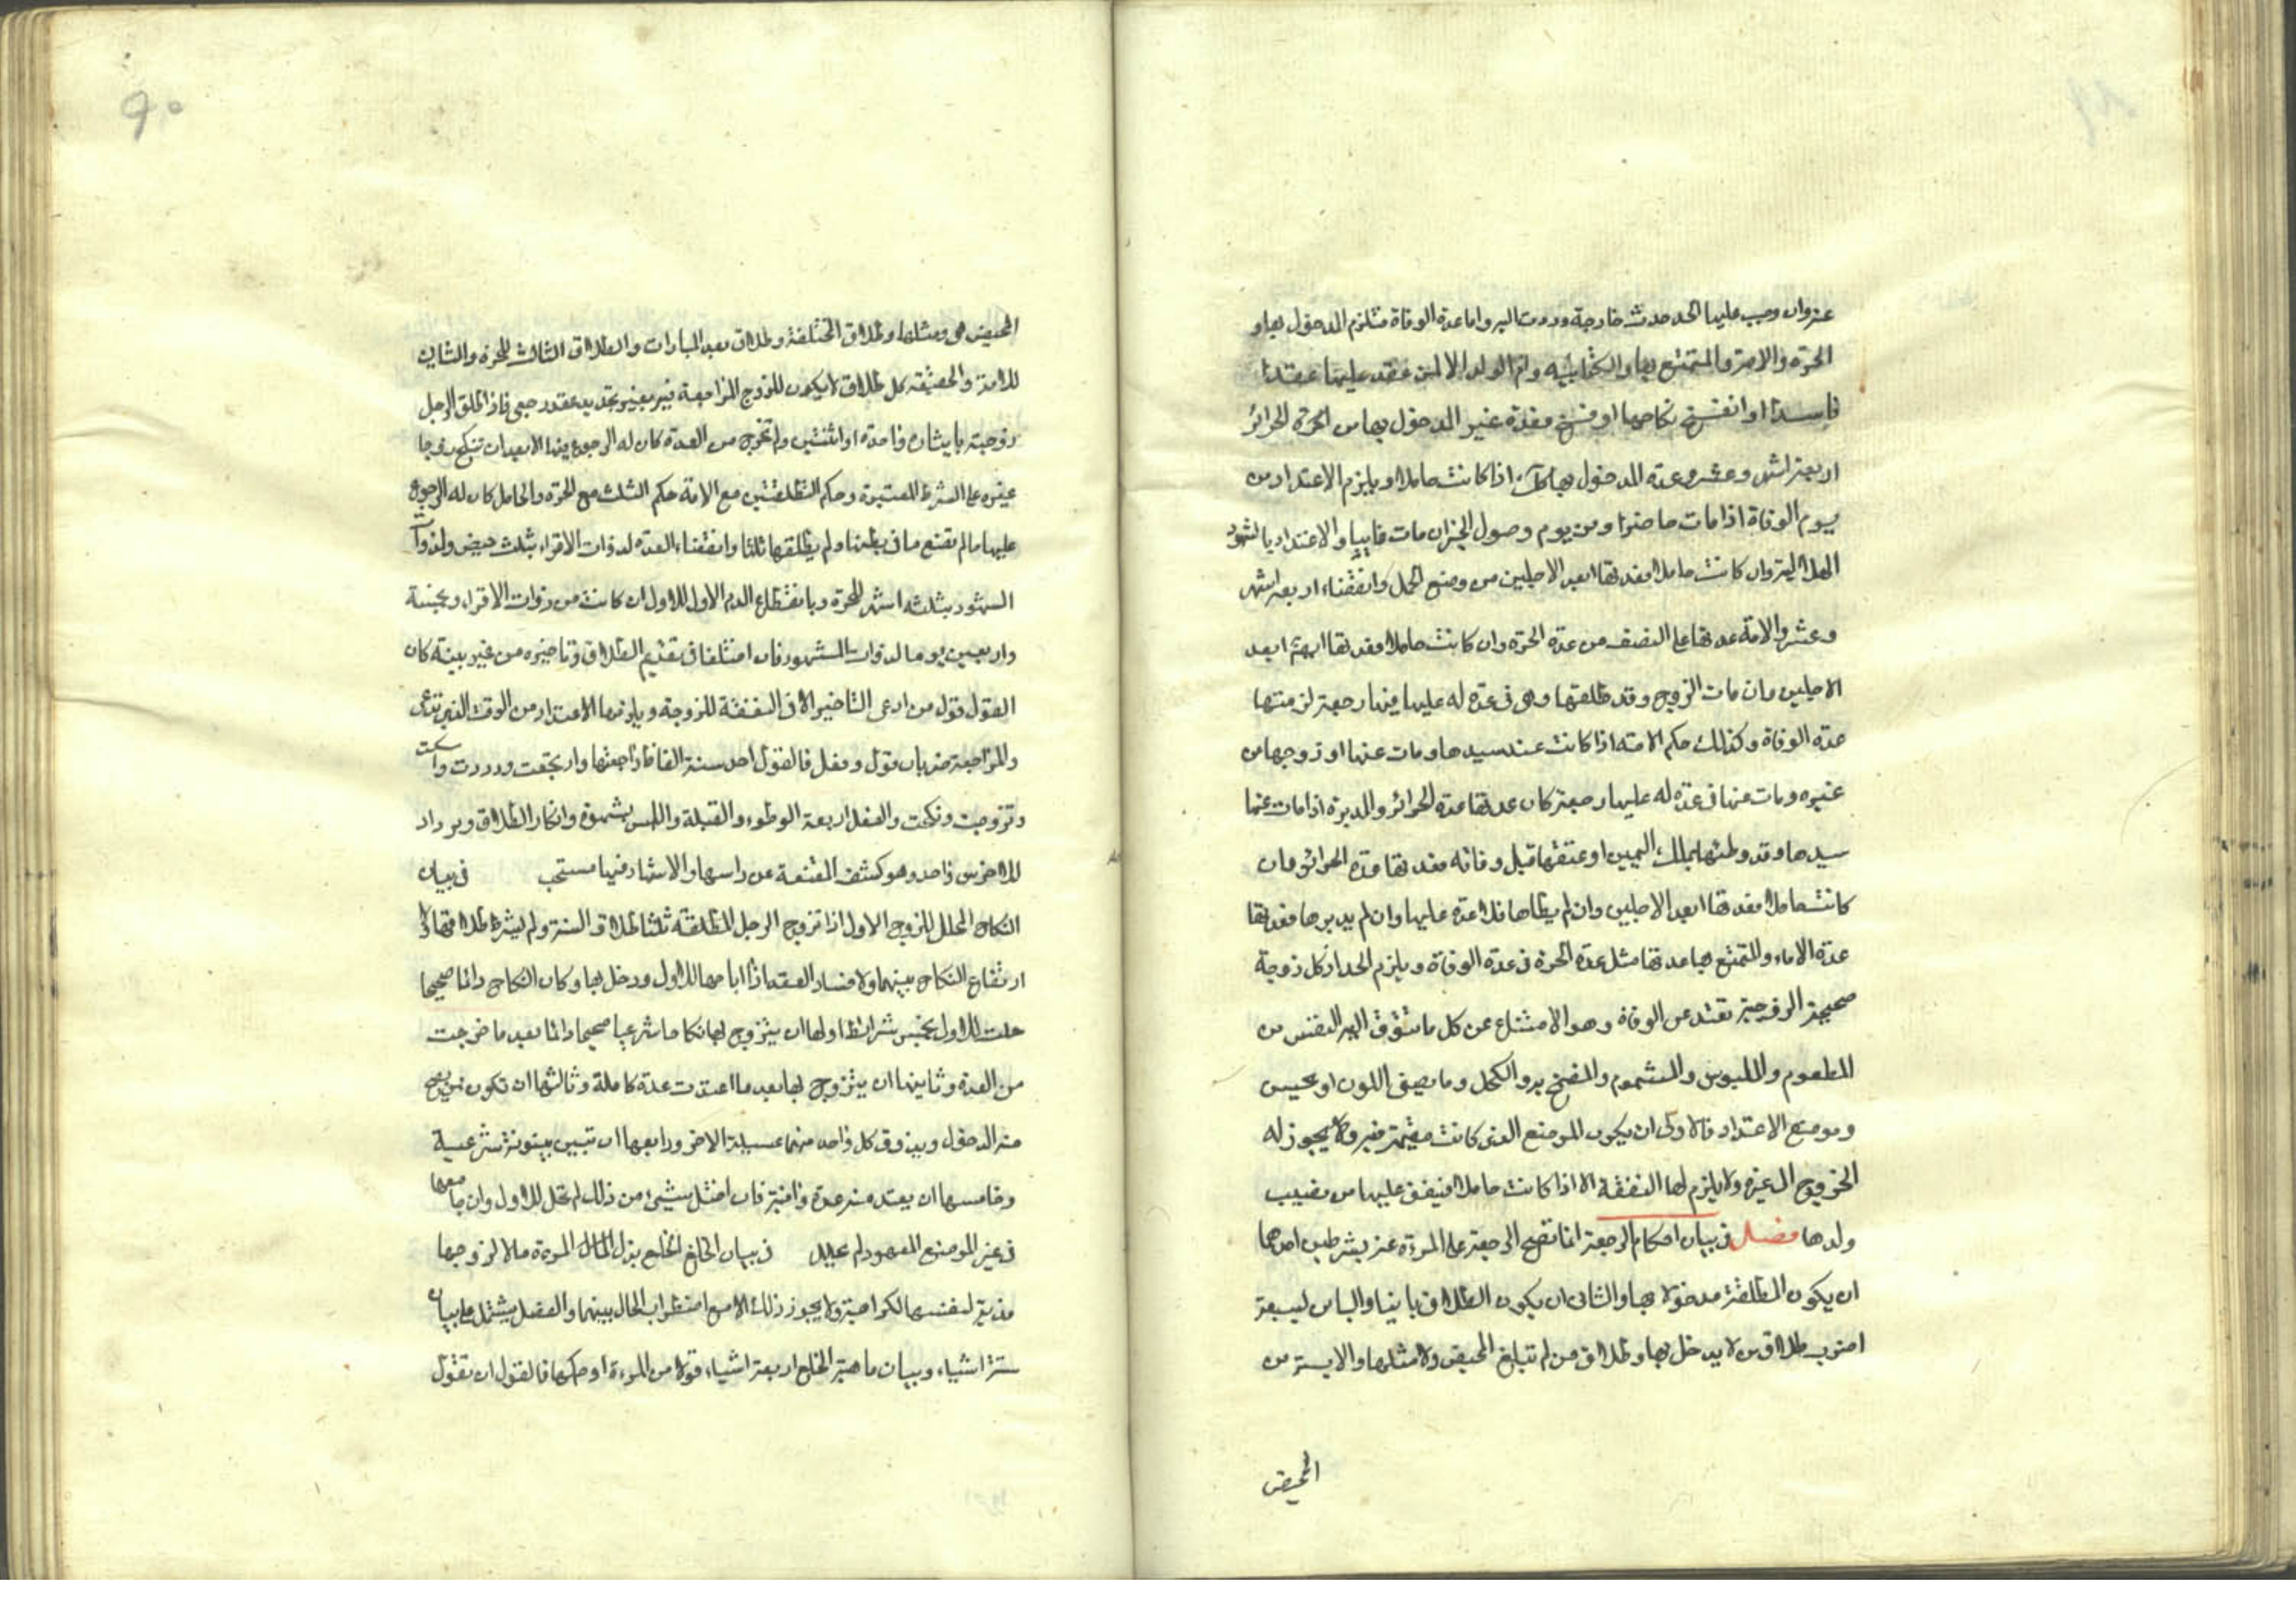 عنه وان وجب عليها الحد حدت خارجة وردت اليه واما عدة الوفاة فتلزم المدخول بها و
الحرة والامة والمتمتع بها والكتابية وام الولد الا لمن عقد عليها عقدا
فاسدا او انفسخ نكاحها او فسخ فعدة غير المدخول بها من الحرة الحرائر
اربعة اشهر وعشر وعدة المدخول بها اذا كانت حاملا ويلزم الاعتداد من
يوم الوفاة اذا مات حاضرا ومن يوم وصول الخبر ان مات غايبا والاعتداد بالشهور
الهلالية وان كانت حاملا فعدتها ابعد الاجلين من وضع الحمل وانقضاء اربعة اشهر
وعشر والامة عدتها على النصف من عدة الحرة وان كانت حاملا فعدتها ايضا ابعد
الاجلين وان مات الزوج وقد طلقها وهى فى عدة له عليها فيها رجعة لزمتها
عدة الوفاة وكذلك حكم الامة اذا كانت عند سيدها ومات عنها او زوجها من
غيره ومات عنها فى عدة له عليها رجعة كان عدتها عدة الحرائر والمدبرة اذا مات عنها
سيدها وقد وطئها بملك اليمين او عتقها قبل وفاته فعدتها عدة الحرائر وان
كانت حاملا فعدتها ابعد الاجلين وان لم يطاها فلا عدة عليها وان لم يدبرها فعدتها
عدة الاماء والمتمتع بها عدتها مثل عدة الحرة فى عدة الوفاة ويلزم الحداد كل زوجة
صحيحة الزوجية تعتد عن الوفاة وهو الامتناع عن كل ما تتوق اليه النفس من
المطعوم والملبوس والمشموم والخضخ بدو الكحل وما يصفى اللون او يحسن
وموضع الاعتداد فالاولى ان يكون الموضع الذى كانت مقيمة فيه ولا يجوز له
الخروج الى غيره ولا يلزم لها النفقة الا اذا كانت حاملا فينفق عليها من نصيب
ولدها فصل فى بيان احكام الرجعة انما تصح الرجعة على المرءة عنه بشرطين احدهما
ان يكون المطلقة مدخولا بها والثانى ان يكون الطلاق باينا والباين لسبعة
اضرب طلاق من لا يدخل بها وطلاق من لم تبلغ المحيض ولا مثلها والايسة من
المحيض
المحيض هى ومثلها وطلاق المختلعة وطلاق بعد المبارات والطلاق الثالث للحرة والثانى
للامة والحقيقة كل طلاق لا يكون للزوج المراجعة فيه بغير تجديد عقد رجعى فاذا طلق الرجل
زوجته بايثاره واحدة او اثنتين ولم تخرج من العدة كان له الرجوع فيها الا بعد ان تنكح زوجا
غيره على الشرط المعتبرة وحكم التطلقتين مع الامة حكم الثلث مع الحرة والحامل كان له الرجوع
عليها ما لم تضع ما فى بطنها ولم يطلقها ثلثا وانقضاء العدة لذوات الاقراء بثلث حيض ولذوات
الشهور بثلثة اشهر للحرة وبانقطاع الدم الاول للاول ان كانت من ذوات الاقراء وبخمسة
واربعين يوما لذوات الشهور فان اختلفا فى تقديم الطلاق وتاخيره من غير بينة كان
القول قول من ادعى التاخير الا فى النفقة للزوجة ويلزمها الاعتداد من الوقت الذى تدعى
والمراجعة ضربان قول وفعل فالقول احد ستة الفاظ راجعتها وارتجعت ورددت وامسكت
وتزوجت ونكحت والفعل اربعة الوطوء والقبلة واللمس بشهوة وانكار الطلاق ويزداد
للاخرس واحد وهو كشف المقنعة عن راسها والاشهاد فيها مستحب فى بيان
النكاح المحلل للزوج الاول اذا تزوج الرجل المطلقة ثلثا طلاق السنة ولم يشرط طلاقها ولا
ارتفاع النكاح بينهما ولا فساد العقد اذا اباحها للاول ودخل بها وكان النكاح دائما صحيحا
حلت للاول بخمس شرائط اولها ان يتزوج لها نكاحا شرعيا صحيحا دائما بعد ما خرجت
من العدة وثانيها ان يتزوج بها بعد ما اعتدت عدة كاملة وثالثها ان تكون ممن يصح
منه الدخول ويذوق كل واحد منهما عسيلة الاخر ورابعها ان تبين بينونة شرعية
وخامسها ان يعتد منه عدة وافية فان اختل بشيئ من ذلك لم تحل للاول وان جامعها
فى غير الموضع المعهود لم يحلل فى بيان الخلع الخلع بذل المال المرءة مالا لزوجها
فدية لنفسها لكراهية ولا يجوز ذلك الا مع اضطراب الحال بينهما والفصل يشتمل على بيان
ستة اشياء وبيان ماهية الخلع اربعة اشياء قولا من المرءة او حكمها فالقول ان تقول